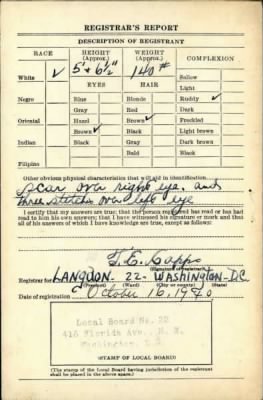 REGISTRAR'S REPORT
DESCRIPTION OF REGISTRANT
RACE HEIGHT (Approx.) WEIGHT (Approx.) COMPLEXION
5' + 6½" 140 #
White ✓ Sallow
EYES HAIR Light
Negro Blue Blonde Ruddy ✓
Gray Red Dark
Oriental Hazel Brown ✓ Freckled
Brown ✓ Black Light brown
Indian Black Gray Dark brown
Bald Black
Filipino
Other obvious physical characteristics that will aid in identification
Scar over right eye, and
three stitches over left eye
I certify that my answers are true; that the person registered has read or has had
read to him his own answers; that I have witnessed his signature or mark and that
all of his answers of which I have knowledge are true, except as follows:
(Signature of registrar)
Registrar for LANGDON - 22. WASHINGTON - D.C.
(Precinct) (Ward) (City or county) (State)
Date of registration October 16, 1940
Local Board No. 22
415 Florida Ave., N. E.
Washington, D.C.
(STAMP OF LOCAL BOARD)
(The stamp of the Local Board having jurisdiction of the registrant
shall be placed in the above space.)